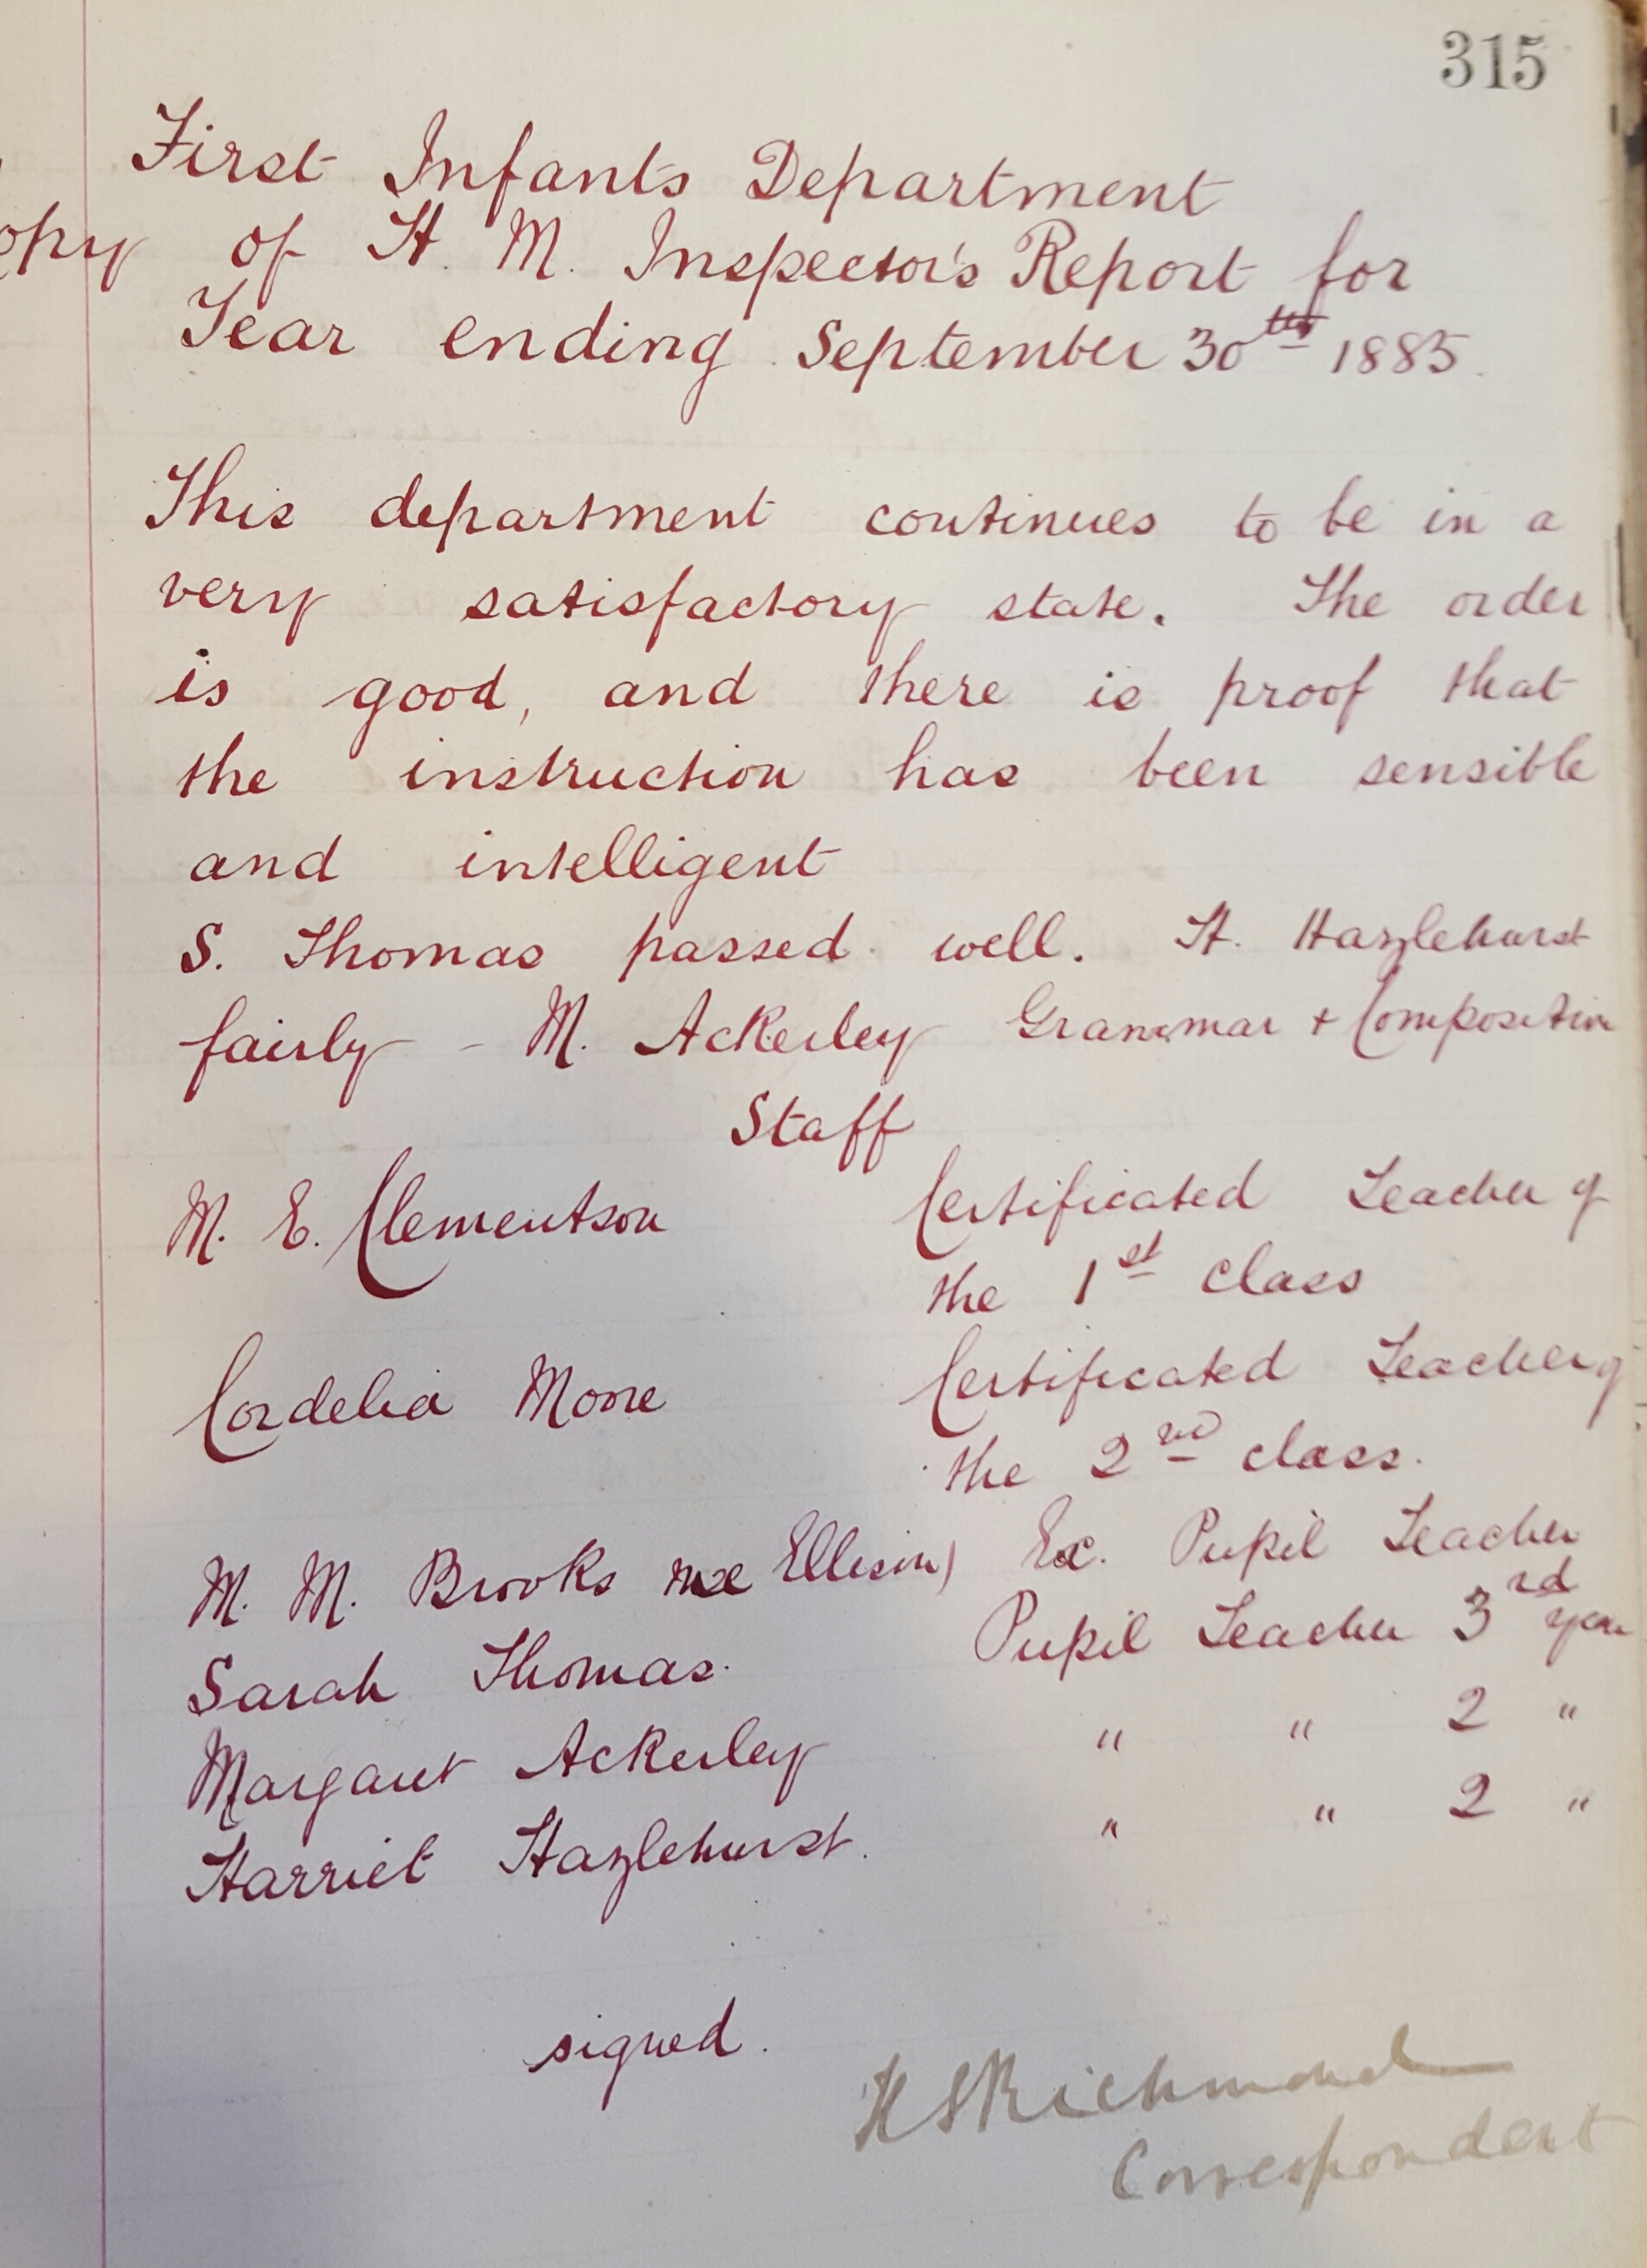 315
First Infants Department
opy of H. M. Inspector's Report for
Year ending September 30th 1885.
This department continues to be in a
very satisfactory state. The order
is good, and there is proof that
the instruction has been sensible
and intelligent
S. Thomas passed well. H. Hazlehurst
fairly - M. Ackerley Grammar + Composition
Staff
M. E. Clementson Certificated Teacher of
the 1st class
Cordelia Moore Certificated Teacher of
the 2nd class.
M. M. Brooks nee Ellison) Ex. Pupil Teacher
Sarah Thomas. Pupil Teacher 3rd year
Margaret Ackerley " " 2 "
Harriet Hazlehurst. " " 2 "
signed.
H S Richmond
Correspondent